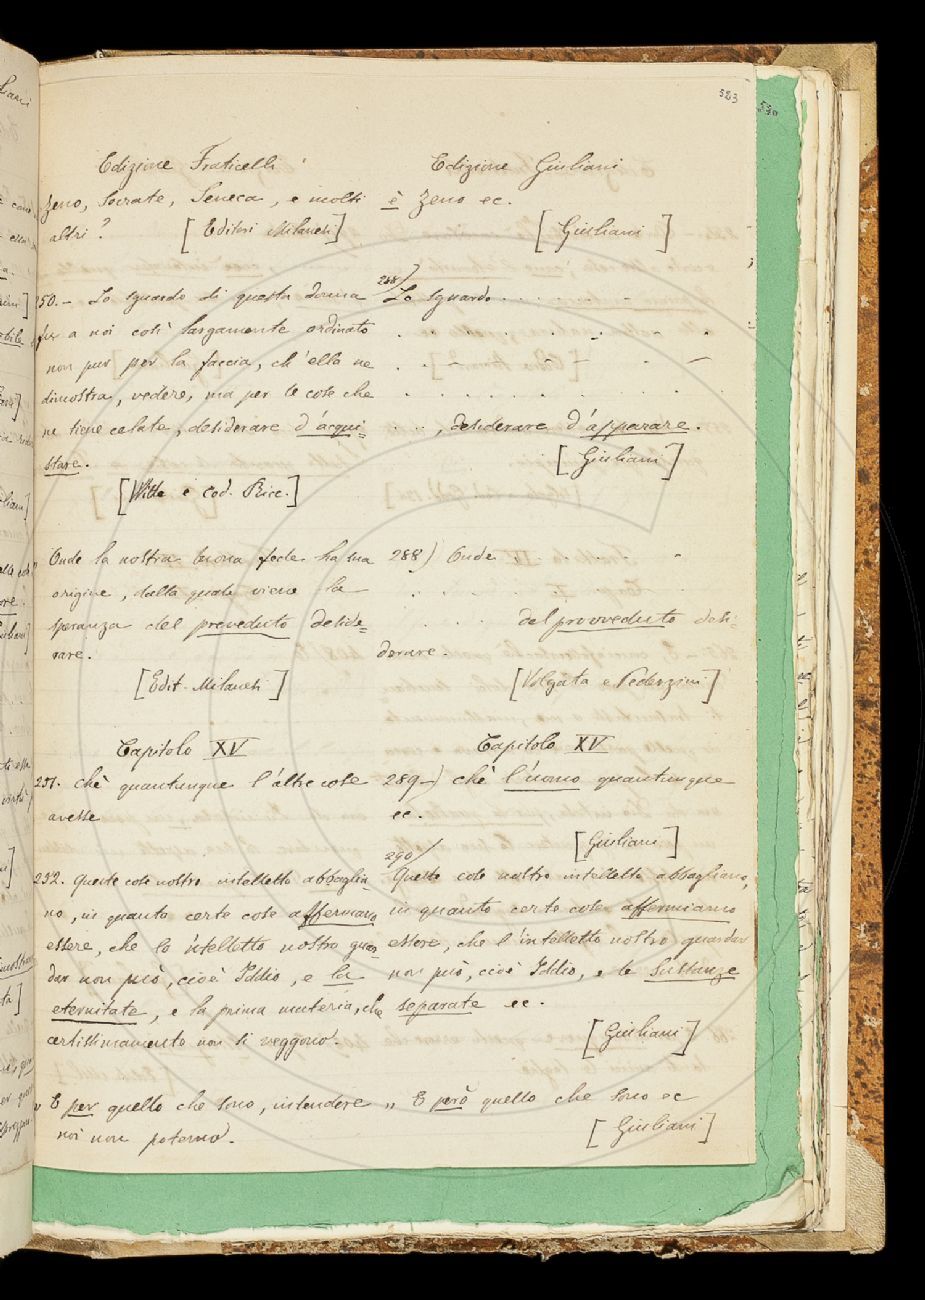 523
530
Edizione Fraticelli
Zeno, Socrate, Seneca, e molti
altri?
[Editori Milanesi]
250. - Lo sguardo di questa donna
fu a noi così largamente ordinato
non pur per la faccia, ch'ella ne
dimostra, vedere, ma per le cose che
ne tiene celate, desiderare d'acqui=
stare.
[Witte e Cod. Ricc.]
Onde la nostra buona fede ha sua
origine, dalla quale viene la
speranza del preveduto deside=
rare.
[Edit. Milanesi]
Capitolo XV
251. Chè quantunque l'altre cose
avesse
252. Queste cose nostro intelletto abbaglia-
no, in quanto certe cose affermano
essere, che lo 'ntelletto nostro guar=
dar non può, cioè Iddio, e la
eternitate, e la prima materia, che
certissimamente non si veggono.
" E per quello che sono, intendere
noi non potemo.
Edizione Giuliani
è Zeno ec.
[Giuliani]
288/
Lo sguardo . . . . . .
. . . , desiderare d'apparare.
[Giuliani]
288) Onde
. . . del provveduto desi-
derare.
[Volgata e Pederzini]
Capitolo XV
289-) chè l'uomo quantunque
ec.
[Giuliani]
290/
Queste cose nostro intelletto abbagliano,
in quanto certe cose affermiamo
essere, che l'intelletto nostro guardar
non può, cioè Iddio, e le Sustanze
separate ec.
[Giuliani]
" E però quello che sono ec
[Giuliani]